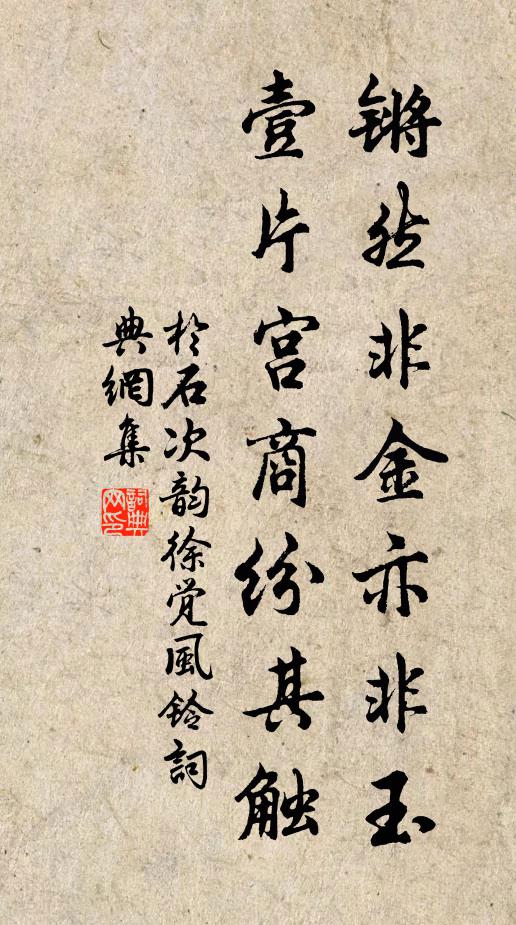 锵然非金亦非玉
壹片宫商纷其触
於石次韵徐觉风铃詞
典網集
詞典网印